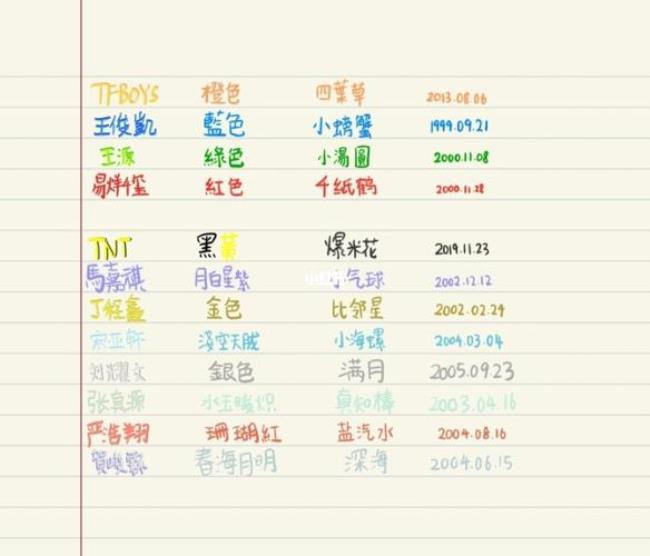 TFBOYS 橙色 四葉草 2013.08.06
王俊凱 藍色 小螃蟹 1999.09.21
王源 綠色 小湯圓 2000.11.08
易烊千玺 紅色 千纸鹤 2000.11.28
TNT 黑黃 爆米花 2019.11.23
馬嘉祺 月白星紫 气球 2002.12.12
丁程鑫 金色 比邻星 2002.02.24
宋亚轩 浅空天蓝 小海螺 2004.03.04
刘耀文 銀色 满月 2005.09.23
张真源 小玉暖炽 真知棒 2003.04.16
严浩翔 珊瑚紅 盐汽水 2004.08.16
賀峻霖 春海月明 深海 2004.06.15